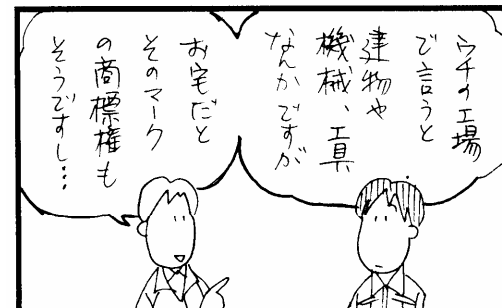 ウチの工場
で言うと
建物や
機械、工具
なんかですが
お宅だと
そのマーク
の商標権も
そうですし…